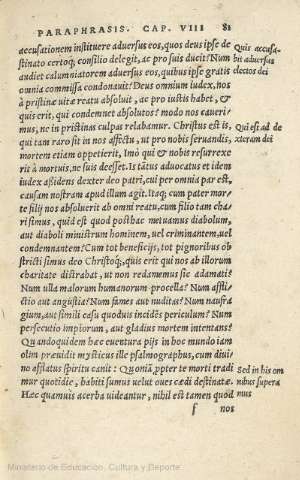 PARAPHRASIS. CAP. VIII 81
accusationem instituere aduersus eos, quos deus ipse de
stinato certoq; consilio delegit, ac pro suis ducit? Num
audiet calumniatorem aduersus eos, quibus ipse gratis
omnia commissa condonauit? Deus omnium iudex, nos
à pristinæ uitæ reatu absoluit, ac pro iustis habet, &
quis erit, qui condemnet absolutos? modo nos caueri=
mus, ne in pristinas culpas relabamur. Christus est is,
qui tam raro sit in nos affectu, ut pro nobis seruandis,
mortem etiam oppetierit, Imò qui & nobis resurrexe
rit à mortuis, ne suis deesset. Is tātus aduocatus et idem
iudex aßidens dexter deo patri, cui per omnia par est,
causam nostram apud illum agit. Itaq; cum pater mor=
te filij nos absoluerit ab omni reatu, cum filio tam cha
rißimus, quid est quod posthac metuamus diabolum,
aut diaboli ministrum hominem, uel criminantem, uel
condemnantem? Cum tot beneficijs, tot pignoribus ob
stricti simus deo Christoq;, quis erit qui nos ab illorum
charitate distrahat, ut non redamemus sic adamati?
Num ulla malorum humanorum procella? Num afflic=
tio aut angustia? Num fames aut nuditas? Num naufra
gium, aut simili casu quodus incidēs periculum? Num
persecutio impiorum, aut gladius mortem intentans?
Quandoquidem hæc euentura pijs in hoc mundo iam
olim præuidit mysticus ille psalmographus, cum diui=
no afflatus spiritu canit: Quoniā ꝓpter te morti tradi
mur quotidie, habiti sumus uelut oues cædi destinatæ.
Hæc quamuis acerba uideantur, nihil est tamen quod
f nos
Quis accusa=
bit aduersus
electos dei
Qui est ad de
xteram dei
Sed in his om
nibus supera
mus
Ministerio de Educación, Cultura y Deporte